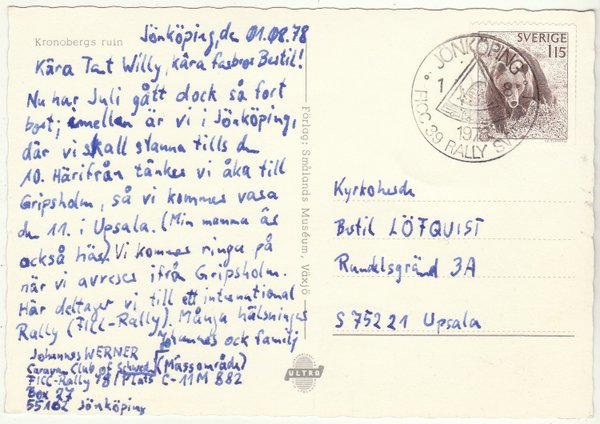 Kronobergs ruin
Jönköping, de 01.08.78
Kära Tant Willy, kära farbror Bertil!
Nu har Juli gått dock så fort
bort; emellen är vi i Jönköping,
där vi skall stanna tills d
10. Härifrån tänker vi åka till
Gripsholm, så vi kommer vara
den 11. i Upsala. (Min mamma är
också här) Vi kommer ringa på
när vi avreser ifrån Gripsholm.
Här deltager vi till ett international
Rally (FICC-Rally). Många hälsninger
Johannes ock familj
Johannes WERNER
Caravan Club of Sweden (Mässområde)
FICC-Rally 78/Plats C-11M 882
Box 27
55102 Jönköping
Förlag: Smålands Museum, Växjö
ULTRO
JÖNKÖPING
1 8
1978
FICC 39 RALLY
SVERIGE
115
Kyrkoherde
Bertil LÖFQUIST
Rundelsgränd 3A
S 75221 Upsala